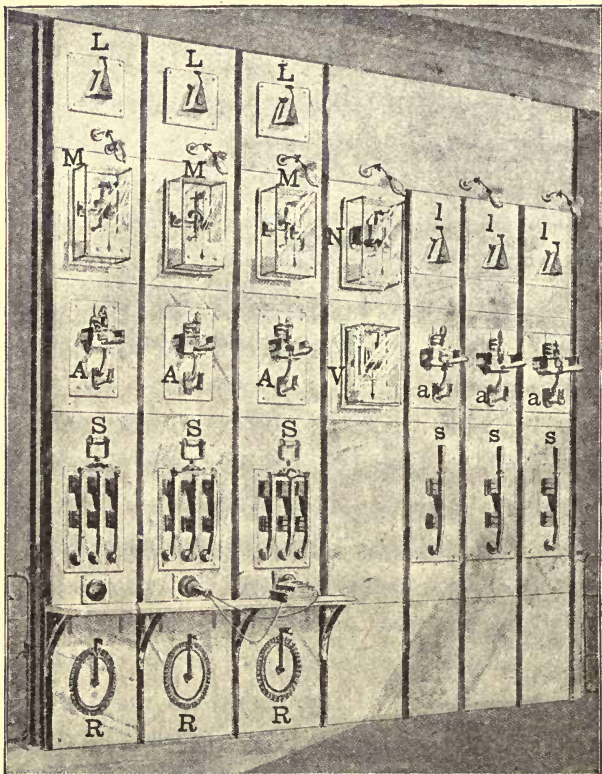 L L L
M M M
N l l l
A A A
V a a a
S S S
s s s
R R R